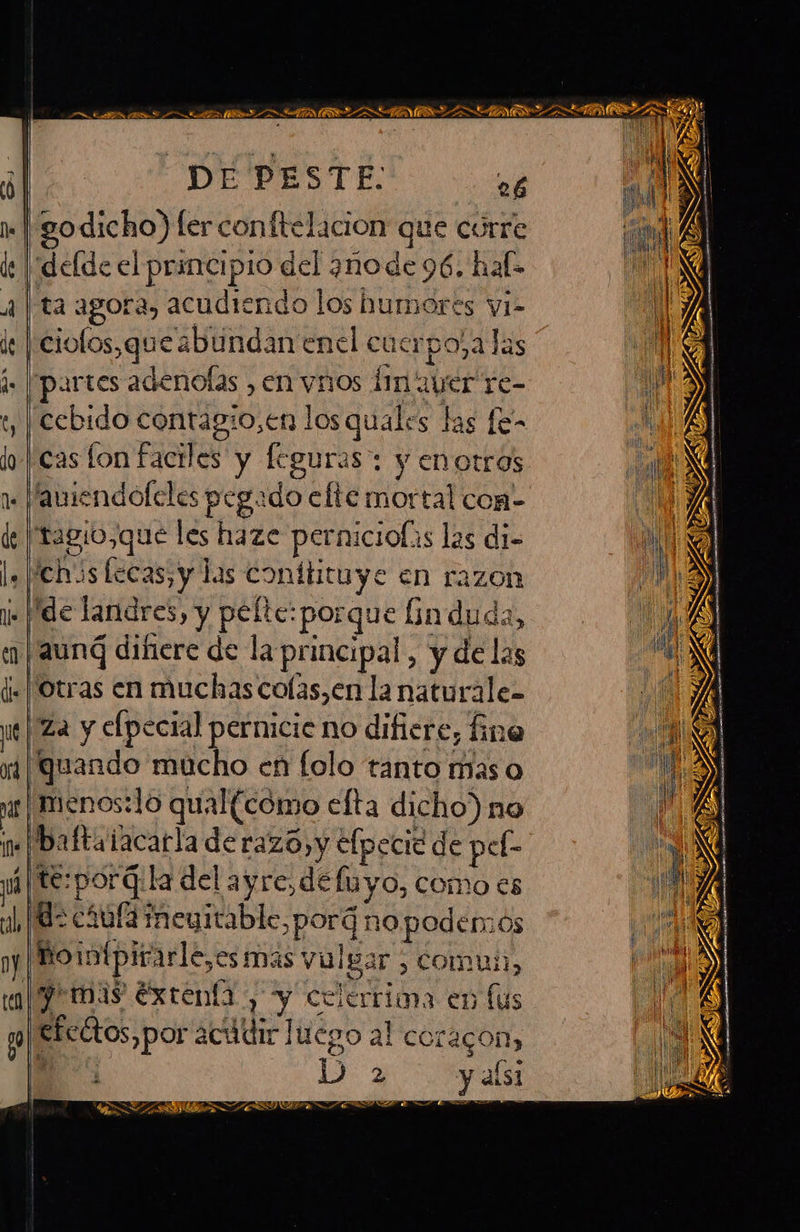 DE PESTE. 26
go dicho) ſer conſtelacion que corre
deſde el principio del año de 96. haſ-
ta agora, acudiendo los humores vi-
cioſos, que abundan enel cuerpo, a las
partes adenoſas , en vnos ſin auer re-
cebido contagio, en los quales las ſe-
cas ſon faciles y ſeguras : y en otros
auiendoſeles pegado eſte mortal con-
tagio, que les haze pernicioſas las di-
chas ſecas, y las conſtituye en razon
de landres, y peſte: porque ſin duda,
aunq̃ difiere de la principal , y de las
otras en muchas coſas, en la naturale-
za y eſpecial pernicie no difiere, ſino
quando mucho en ſolo tanto mas o
menos: lo qual (como eſta dicho) no
baſta ſacarla de razõ, y eſpecie de peſ-
te: porq̃ la del ayre, de ſuyo, como es
de cauſa ineuitable, porq̃ no podemos
no inſpirarle, es mas vulgar , comun,
y mas extenſa , y celerrima en ſus
efectos, por acudir luego al coraçon,
D 2 y aſsi